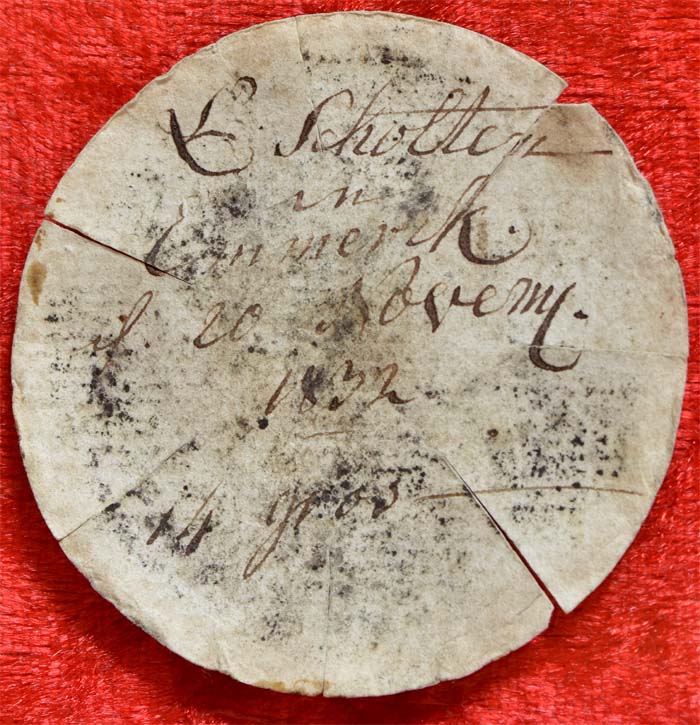 E. Scholten
in
Emmerik.
d. 20 Novem.
1832
14 gros